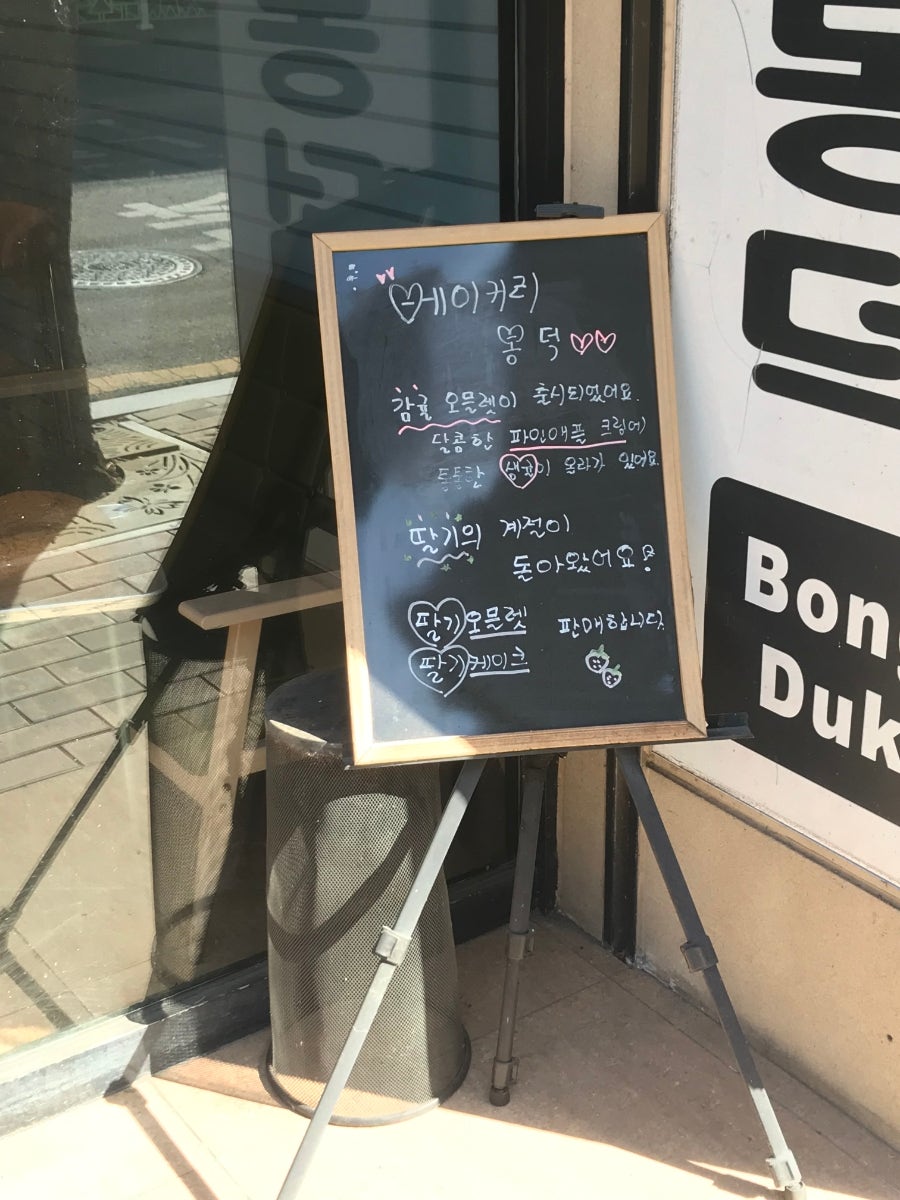 베이커리
봉덕
감귤 오믈렛이 출시되었어요.
달콤한 파인애플 크림에
통통한 생귤이 올라가 있어요.
딸기의 계절이
돌아왔어요!
딸기 오믈렛 판매합니다.
딸기 케이크
봉덕
Bong
Duk